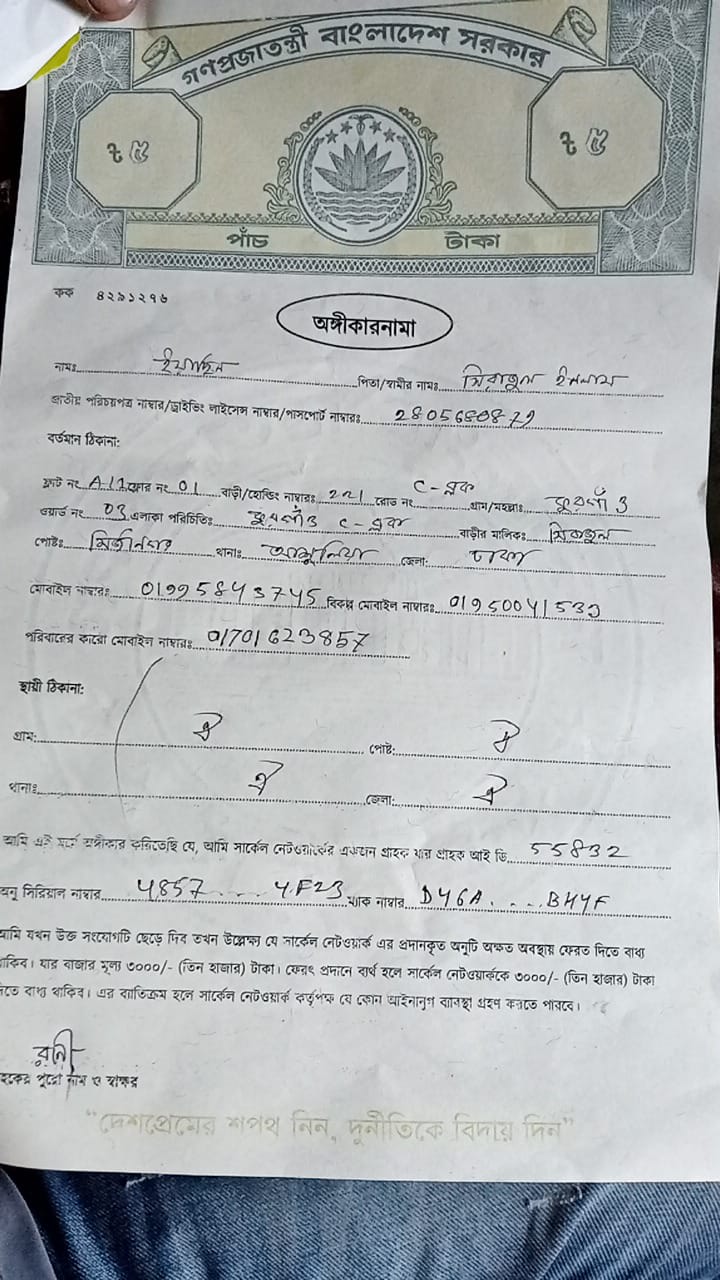 গণপ্রজাতন্ত্রী বাংলাদেশ সরকার
৳ ৫ ৳ ৫
পাঁচ টাকা
কক ৪২৯১২৭৬
অঙ্গীকারনামা
নামঃ ইয়াছিন পিতা/স্বামীর নামঃ সিরাজুল ইসলাম
জাতীয় পরিচয়পত্র নাম্বার/ড্রাইভিং লাইসেন্স নাম্বার/পাসপোর্ট নাম্বারঃ 2805680879
বর্তমান ঠিকানা:
ফ্লাট নং A/1 ফ্লোর নং 01 বাড়ী/হোল্ডিং নাম্বারঃ 221 রোড নং C-ব্লক গ্রাম/মহল্লাঃ
ওয়ার্ড নং 03 এলাকা পরিচিতিঃ C-ব্লক বাড়ীর মালিকঃ
পোষ্টঃ মির্জানগর থানাঃ আশুলিয়া জেলা: ঢাকা
মোবাইল নাম্বারঃ 01995843745 বিকল্প মোবাইল নাম্বারঃ 01950041533
পরিবারের কারো মোবাইল নাম্বারঃ 01701623857
স্থায়ী ঠিকানা:
গ্রাম: ঐ পোষ্ট: ঐ
থানাঃ ঐ জেলা: ঐ
আমি এই মর্মে অঙ্গীকার করিতেছি যে, আমি সার্কেল নেটওয়ার্কের একজন গ্রাহক যার গ্রাহক আই ডি 55832
অনু সিরিয়াল নাম্বার 4857 .... 4F23 ম্যাক নাম্বার D46A .... BH4F
আমি যখন উক্ত সংযোগটি ছেড়ে দিব তখন উল্লেক্ষ্য যে সার্কেল নেটওয়ার্ক এর প্রদানকৃত অনুটি অক্ষত অবস্থায় ফেরত দিতে বাধ্য
থাকিব। যার বাজার মূল্য ৩০০০/- (তিন হাজার) টাকা। ফেরৎ প্রদানে ব্যর্থ হলে সার্কেল নেটওয়ার্ককে ৩০০০/- (তিন হাজার) টাকা
দিতে বাধ্য থাকিব। এর ব্যতিক্রম হলে সার্কেল নেটওয়ার্ক কর্তৃপক্ষ যে কোন আইনানুগ ব্যবস্থা গ্রহণ করতে পারবে।
রনি
গ্রাহকের পুরো নাম ও স্বাক্ষর
"দেশপ্রেমের শপথ নিন, দুর্নীতিকে বিদায় দিন"